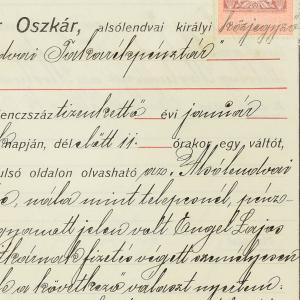 r Oszkár, alsólendvai királyi közjegyző
dvai Takarékpénztár"
lenczszáz tizenkettő évi január
napján, délelőtt 11. órakor egy váltót,
ulsó oldalon olvasható az Alsólendvai
nála mint telepesnél, pénz-
gyanott jelen volt Engel Lajos
titkárnak fizetés végett személyesen
k a következő választ nyertem: